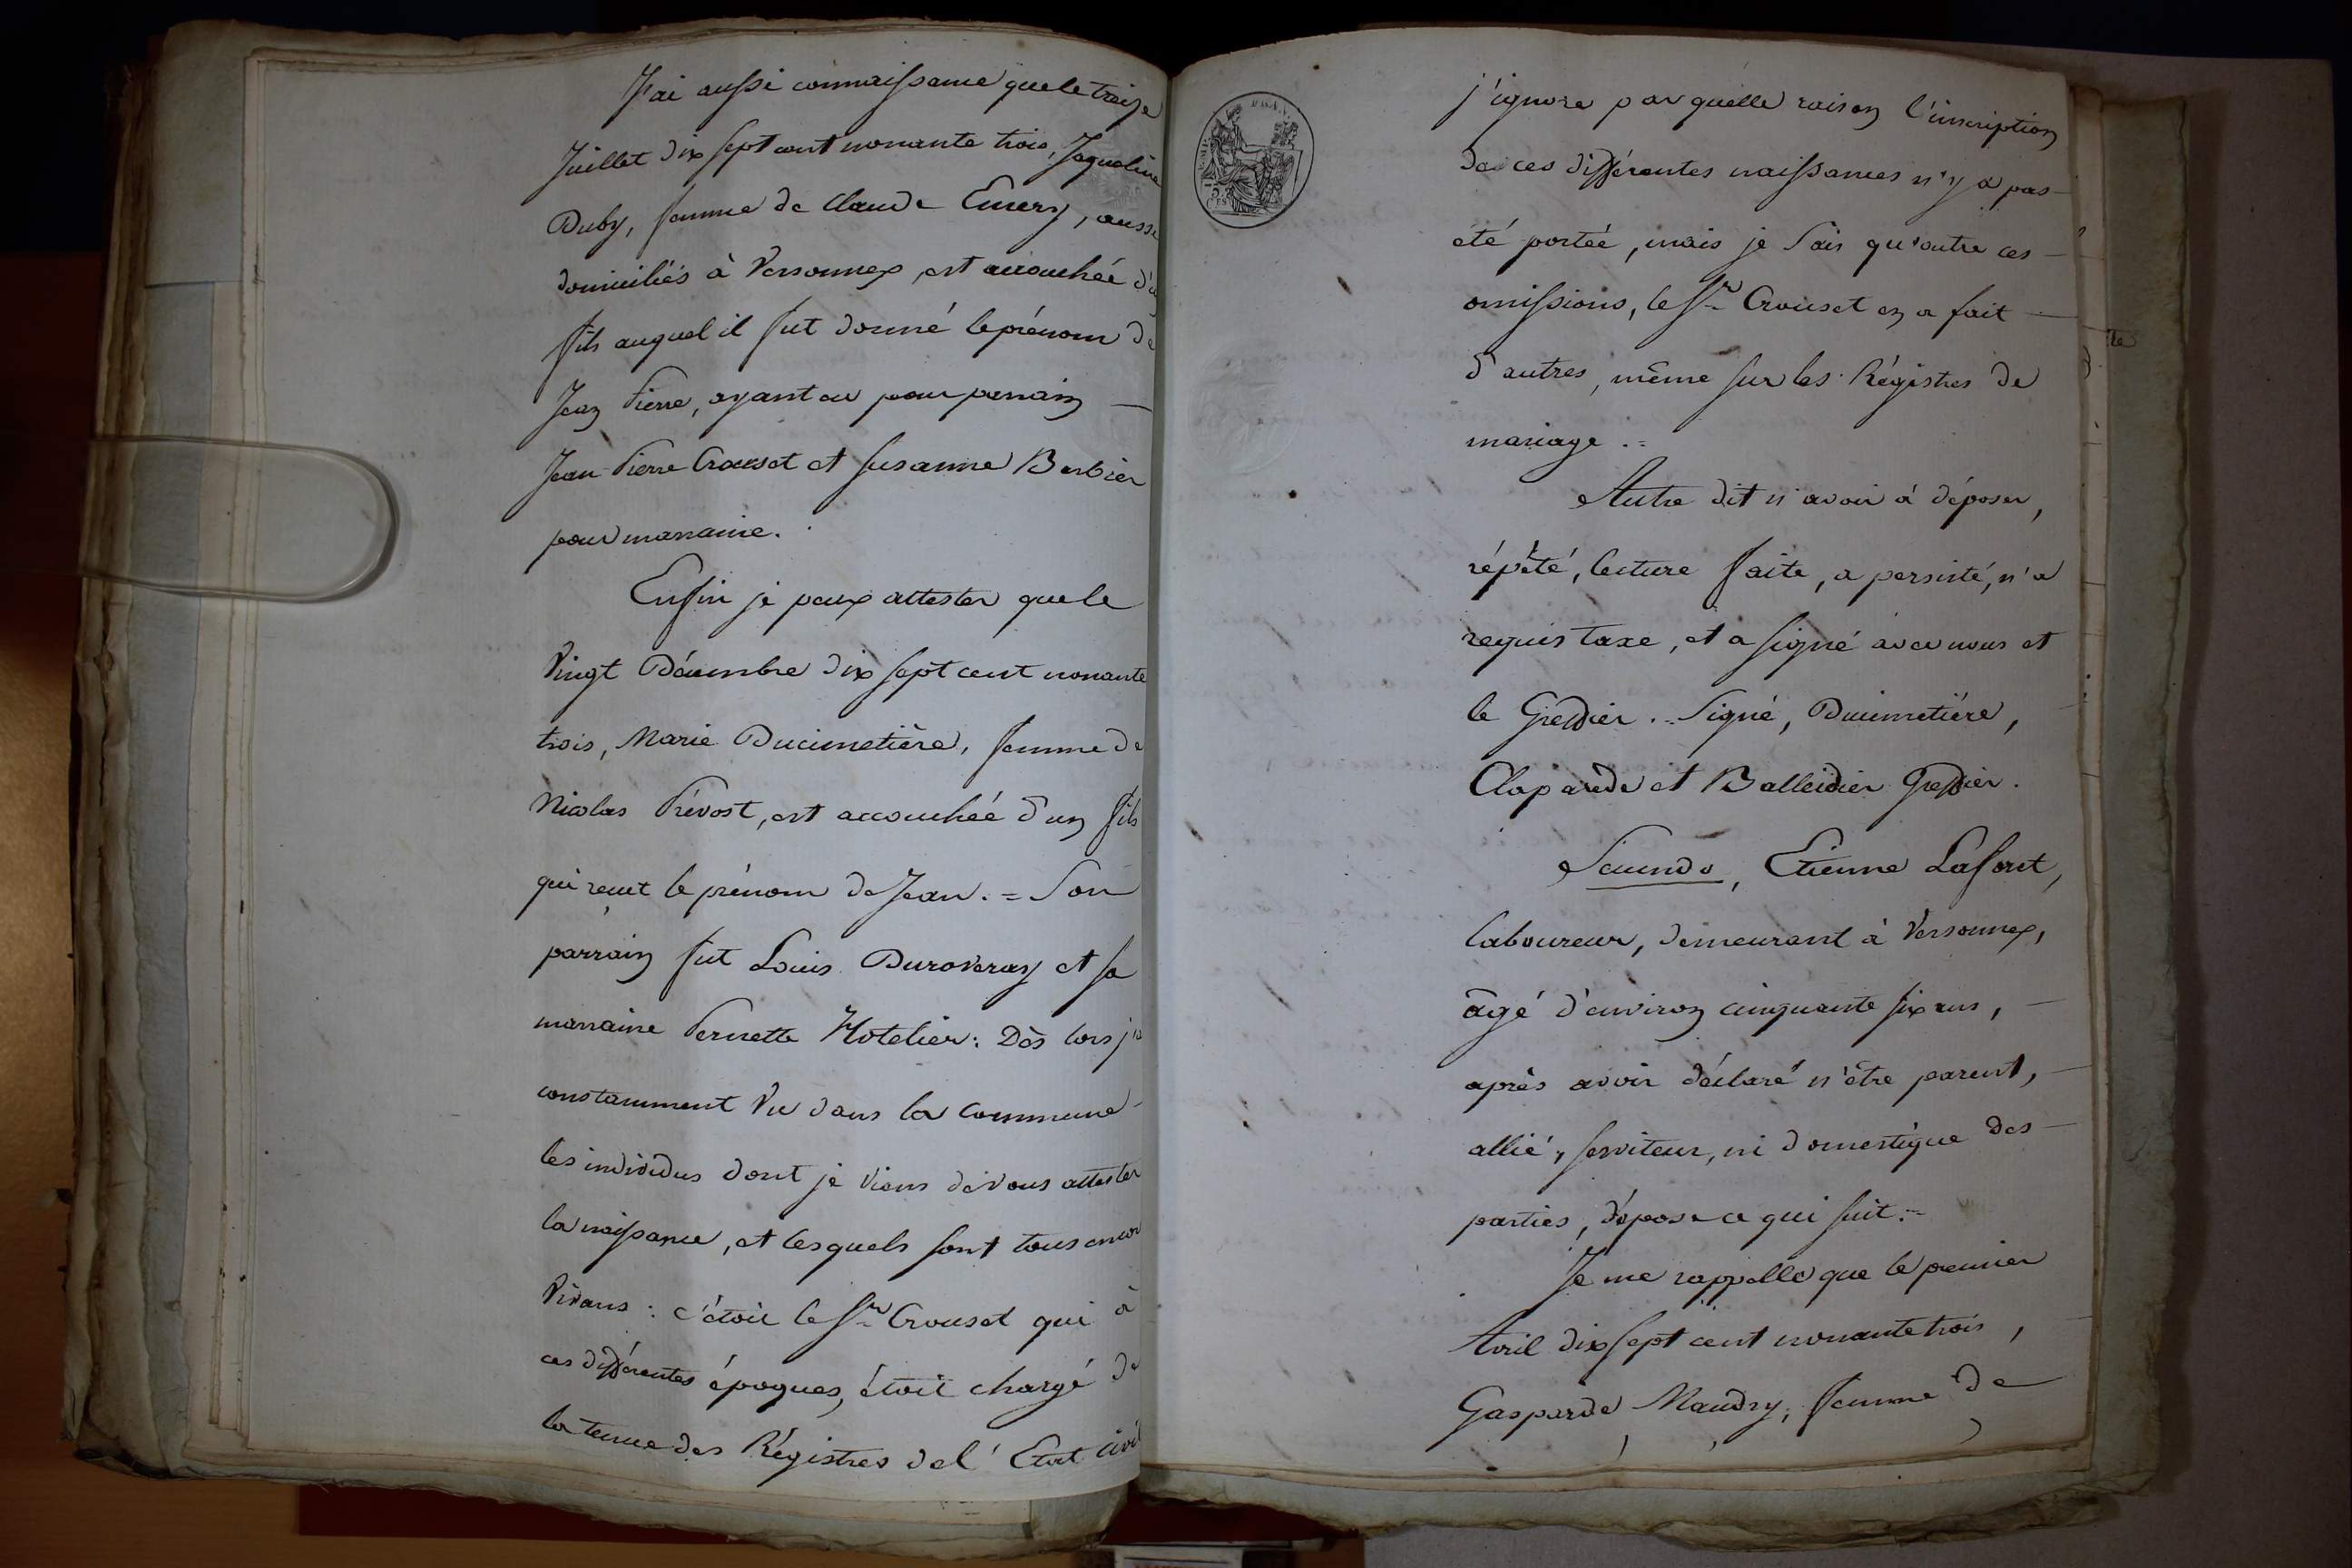 J'ai aussi connaissance que le treize
Juillet dix sept cent nonante trois, Jaqueline
Duby, femme de Claude Emery, aussi
domiciliés à Versonnex, est accouchée d'u
fils auquel il fut donné le prénom de
Jean Pierre, ayant eu pour parrain
Jean Pierre Crouset et Susanne Barbier
pour marraine.
Enfin je peux attester que le
Vingt Décembre dix sept cent nonante
trois, Marie Ducimetière, femme de
Nicolas Prévost, est accouchée d'un fils
qui reçut le prénom de Jean. = Son
parrain fut Louis Duroveray et sa
marraine Pernette Hotelier: Dès lors j'ai
constamment Vu dans la Commune
les individus dont je Viens de Vous attester
la naissance, et lesquels sont tous encor
Vivans : c'étoit le Sr. Crouset qui à
ces différentes époques, étoit chargé de
la tenue des Régistres de l'Etat civil
j'ignore par quelle raison l'inscription
de ces différentes naissances n'y a pas
été portée, mais je sais qu'outre ces
omissions, le Sr. Crouset en a fait
d'autres, même sur les Régistres de
mariage .=
Autre dit n'avoir à déposer,
répété, lecture faite, a persisté, n'a
requis taxe, et a signé avec nous et
le Greffier .= Signé, Ducimetière,
Claparède et Balleidier Greffier.
Secundo, Etienne Lafont,
laboureur, demeurant à Versonnex,
âgé d'environ cinquante six ans,
après avoir déclaré n'être parent,
allié, serviteur, ni domestique des
parties, dépose ce qui suit .=
Je me rappelle que le premier
Avril dix sept cent nonante trois,
Gasparde Maudry, femme de